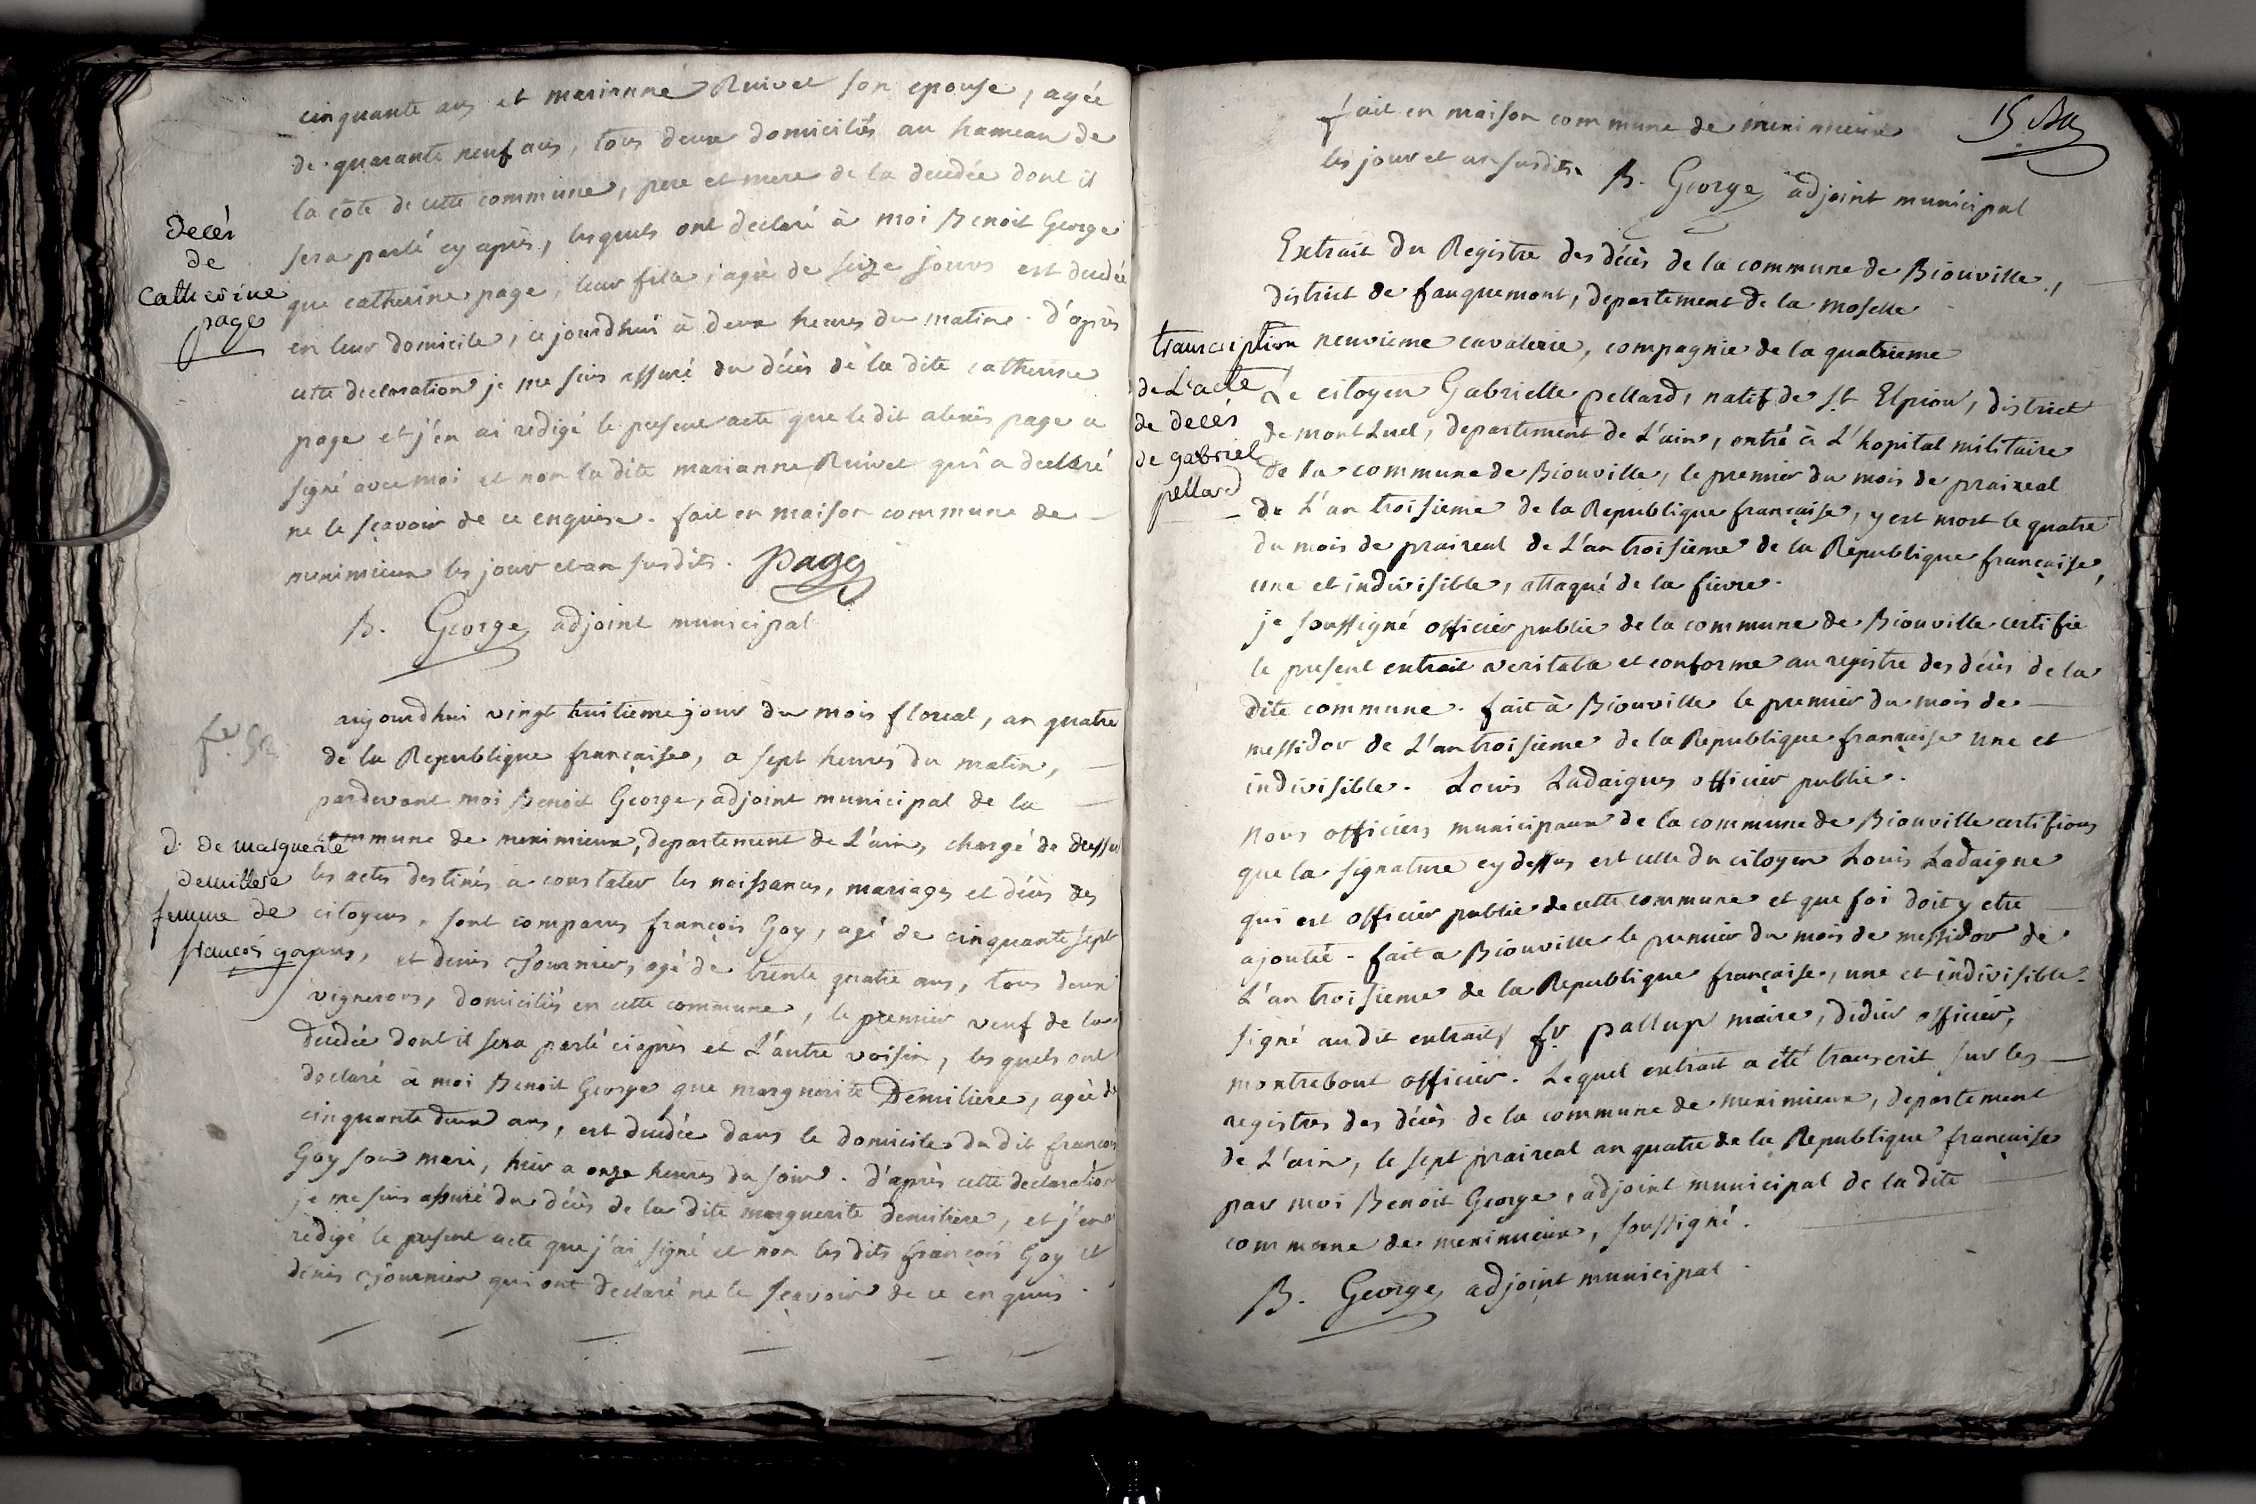 cinquante ans et marianne Ruivet son epouse, agée
de quarante neuf ans, tous deux domiciliés au hameau de
la côte de cette commune, pere et mere de la decedée dont il
sera parlé cy après, lesquels ont declaré à moi Benoit George
que catherine page, leur fille, agée de seize jours est decedée
en leur domicile, ce jourdhui à deux heures du matin. d'après
cette declaration je me suis assuré du décès de la dite catherine
page et j'en ai redigé le present acte que ledit alexis page a
signé avec moi et non la dite marianne Ruivet qui a declaré
ne le sçavoir de ce enquise. fait en maison commune de
meximieux les jour et an susdits. page
B. George adjoint municipal
Decés
de
Catherine
page
aujourdhui vingt huitieme jour du mois floreal, an quatre
de la Republique française, a sept heures du matin,
pardevant moi Benoit George, adjoint municipal de la
commune de meximieux, departement de L'ain, chargé de dresser
les actes destinés a constater les naissances, mariages et décès des
citoyens, sont comparus françois Goy, agé de cinquante sept
ans, et denis Journier, agé de trente quatre ans, tous deux
vignerons, domiciliés en cette commune, le premier veuf de la
decedée dont il sera parlé ci après et L'autre voisin, lesquels ont
declaré à moi Benoit George que marguerite Demiliere, agée de
cinquante deux ans, est decedée dans le domicile du dit françois
Goy son mari, hier a onze heures du soir. d'après cette declaration
je me suis assuré du décès de la dite marguerite demiliere, et j'en ai
redigé le present acte que j'ai signé et non les dits françois Goy et
denis Journier qui ont declaré ne le sçavoir de ce enquis.
D. de marguerite
demillere
femme de
francois goy
fait en maison commune de meximieux
les jour et an susdits.
B. George adjoint municipal
Extrait du Registre des décès de la commune de Bionville,
district de fauquemont, departement de la moselle
neuvieme cavalerie, compagnie de la quatrieme
Le citoyen Gabrielle pellard, natif de St Elpion, district
de montLuel, departement de L'ain, entré à L'hopital militaire
de la commune de Bionville, le premier du mois de praireal
de L'an troisieme de la Republique française, y est mort le quatre
du mois de praireal de L'an troisieme de la Republique française,
une et indivisible, attaqué de la fievre.
je soussigné officier public de la commune de Bionville certifie
le present extrait veritable et conforme au registre des décès de la
dite commune. fait à Bionville le premier du mois de
messidor de L'an troisieme de la Republique française une et
indivisible. Louis Ladaigues officier public.
nous officiers municipaux de la commune de Bionville certifions
que la signature cy dessus est celle du citoyen Louis Ladaigne
qui est officier public de cette commune et que foi doit y etre
ajoutée. fait a Bionville le premier du mois de messidor de
L'an troisieme de la Republique française, une et indivisible.
signé audit extrait, fr pallup maire, didier officier,
montrebout officier. Lequel extrait a été transcrit sur les
registres des décès de la commune de meximieux, departement
de L'ain, le sept praireal an quatre de la Republique française
par moi Benoit George, adjoint municipal de la dite
commune de meximieux, soussigné.
B. George adjoint municipal.
transcription
de L'acte
de decés
de gabriel
pellard